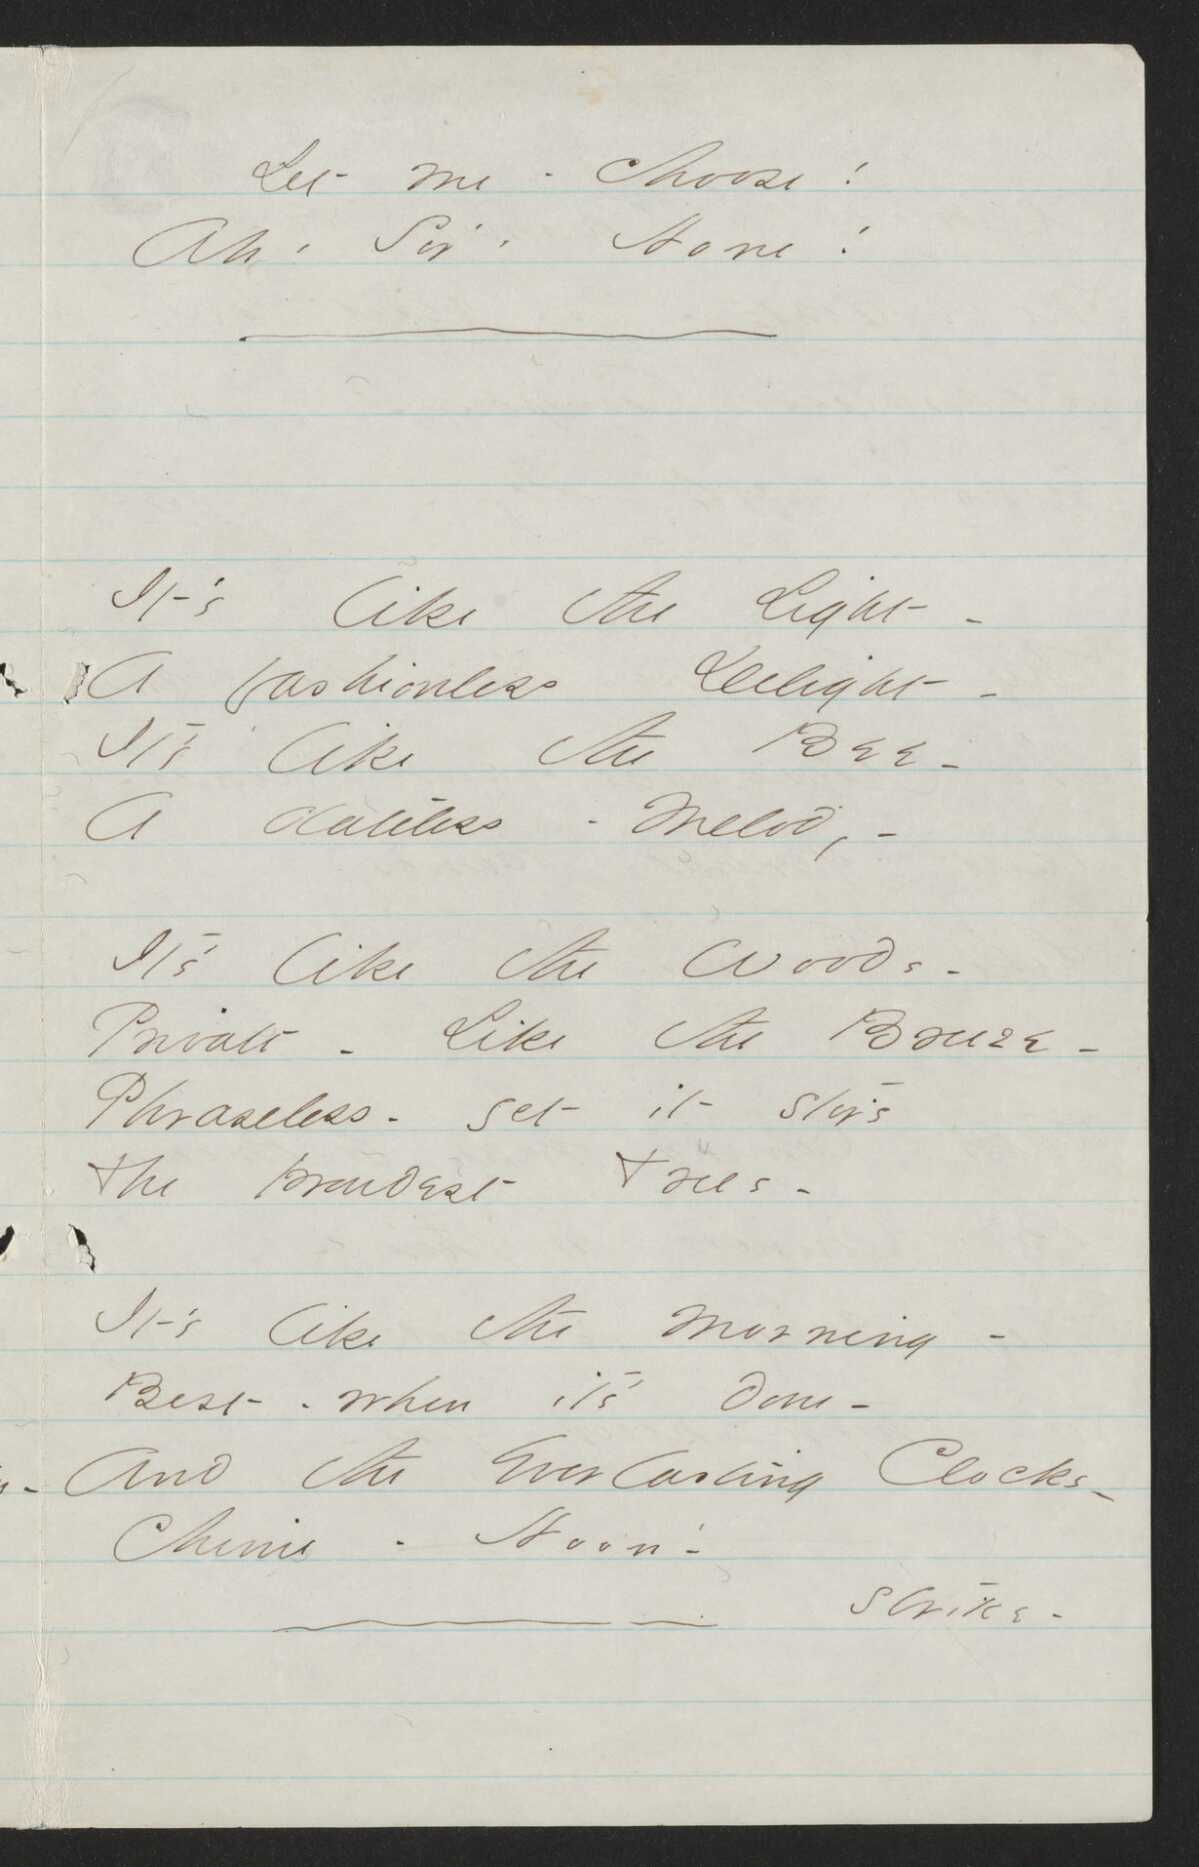 Let me - Choose!
Ah! Sir! None!
It's like the Light -
A fashionless Delight -
It's like the Bee -
A dateless - Melody -
It's like the Woods -
Private - Like the Breeze -
Phraseless - yet it stirs
the proudest trees -
It's like the morning -
Best - when it's done -
And the Everlasting Clocks -
Chime - Noon!
Strike -